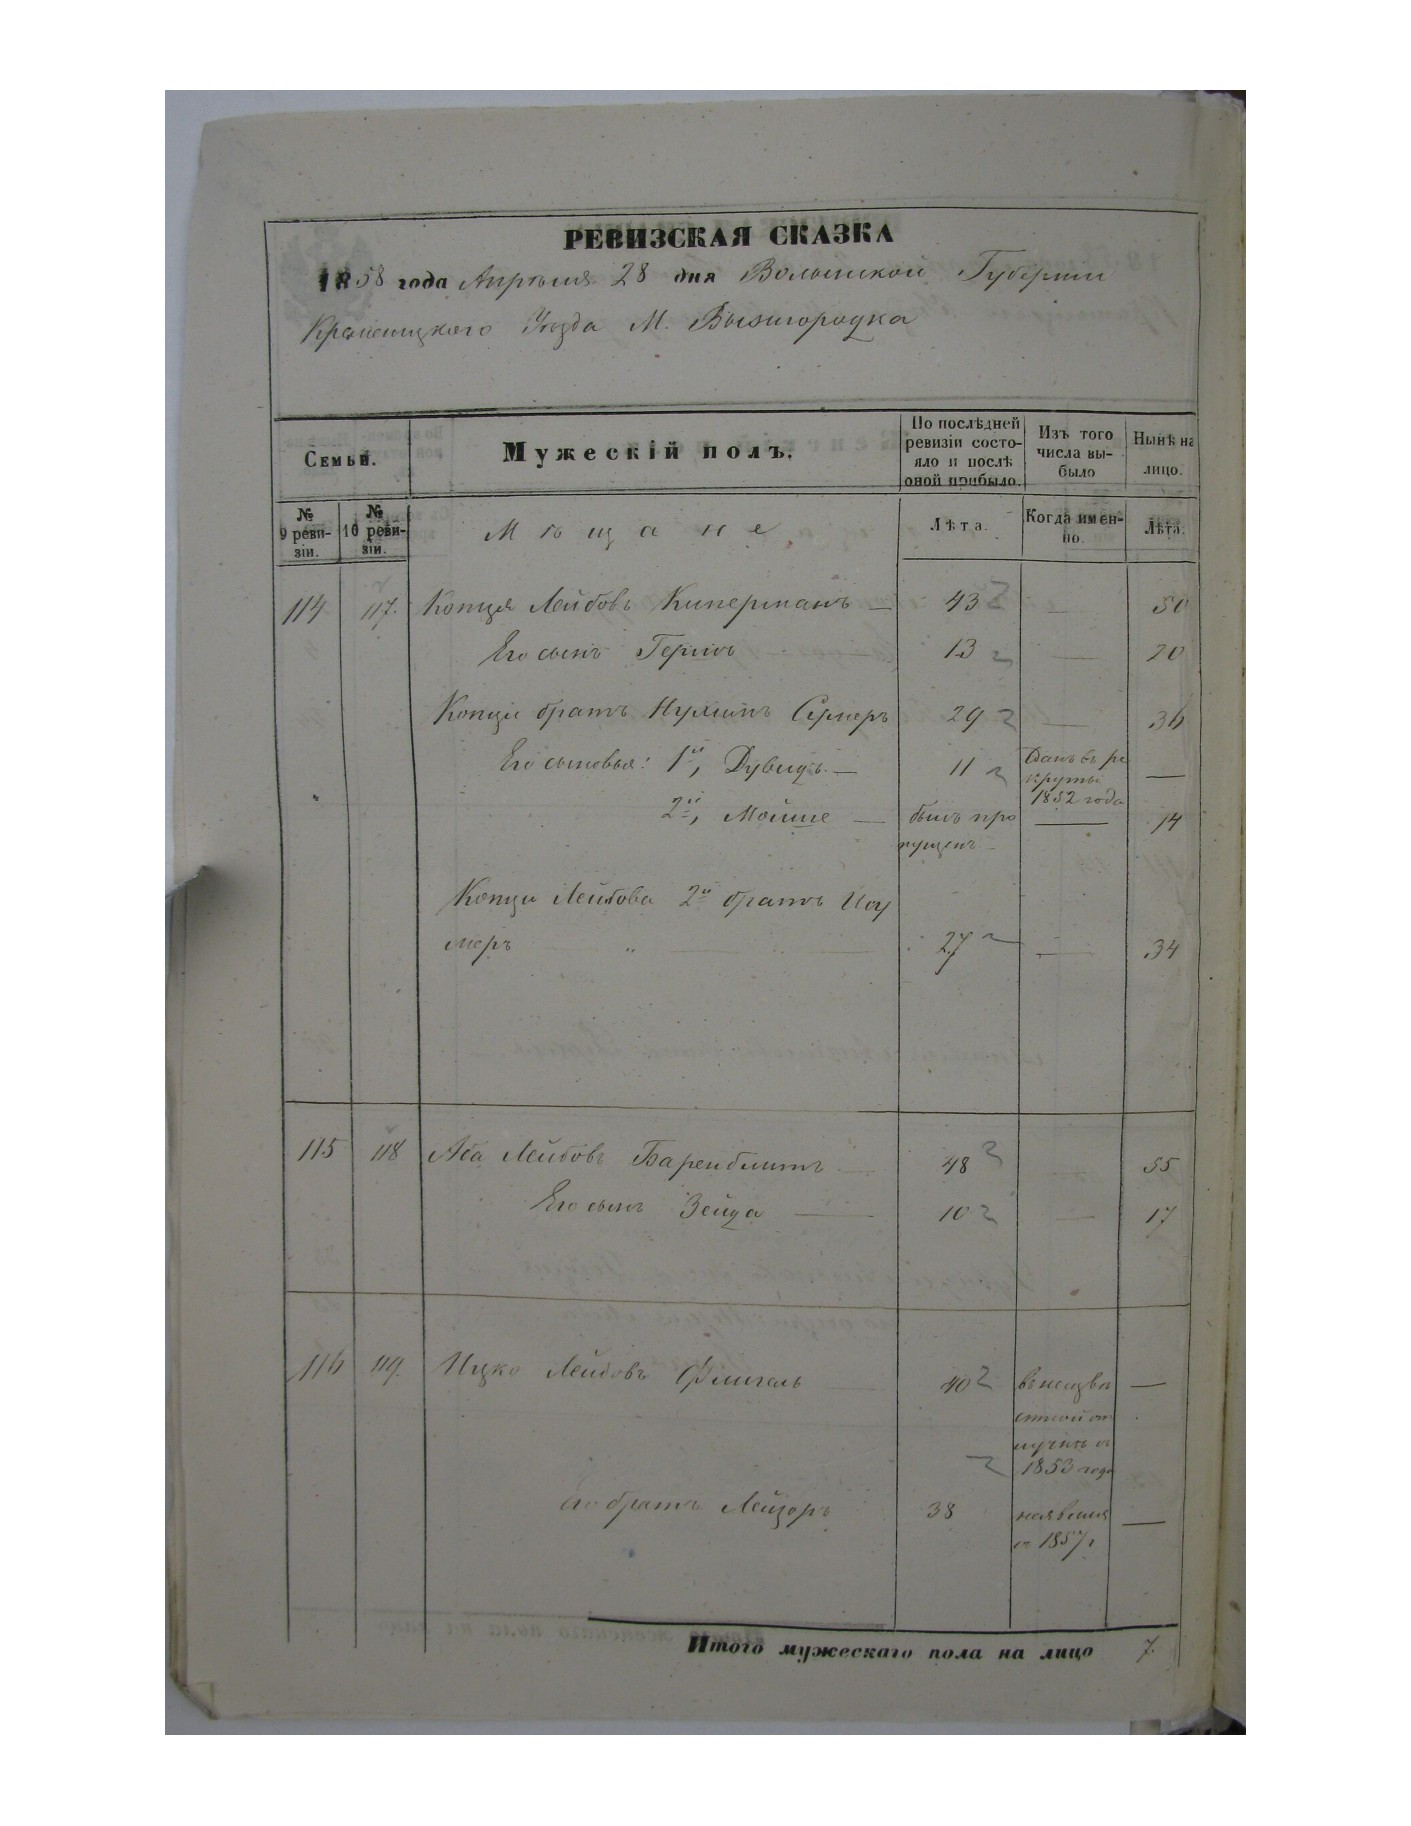 РЕВИЗСКАЯ СКАЗКА
1858 года Апрѣля 28 дня Волынской Губерніи
Кременецкого Уѣзда М. Вышгородка
Семьи. Мужескій полъ. По послѣдней ревизіи состояло и послѣ оной прибыло. Изъ того числа выбыло Нынѣ на лицо.
№ 9 ревизіи. № 10 ревизіи. Мѣщане Лѣта. Когда именно. Лѣта.
114 117. Копця Лейбовъ Киперманъ — 43 — 50
Его сынъ Гершъ — 13 — 20
Копци братъ Нухимъ 29 — 36
Его сыновья: 1й, Дувидъ — 11 Данъ въ рекруты 1852 года —
2й, Мойше — былъ пропущенъ — 14
Копци Лейбова 2й братъ
меръ — „ — 27 — 34
115 118 Аба Лейбовъ Баренблитъ — 48 — 55
Его сынъ Зейда — 10 — 17
116 119. Ицко Лейбовъ Флигель — 40 въ неизвѣстной отлучкѣ съ 1853 года —
Его братъ Лейзоръ 38 съ 1857 г —
Итого мужескаго пола на лицо 7.